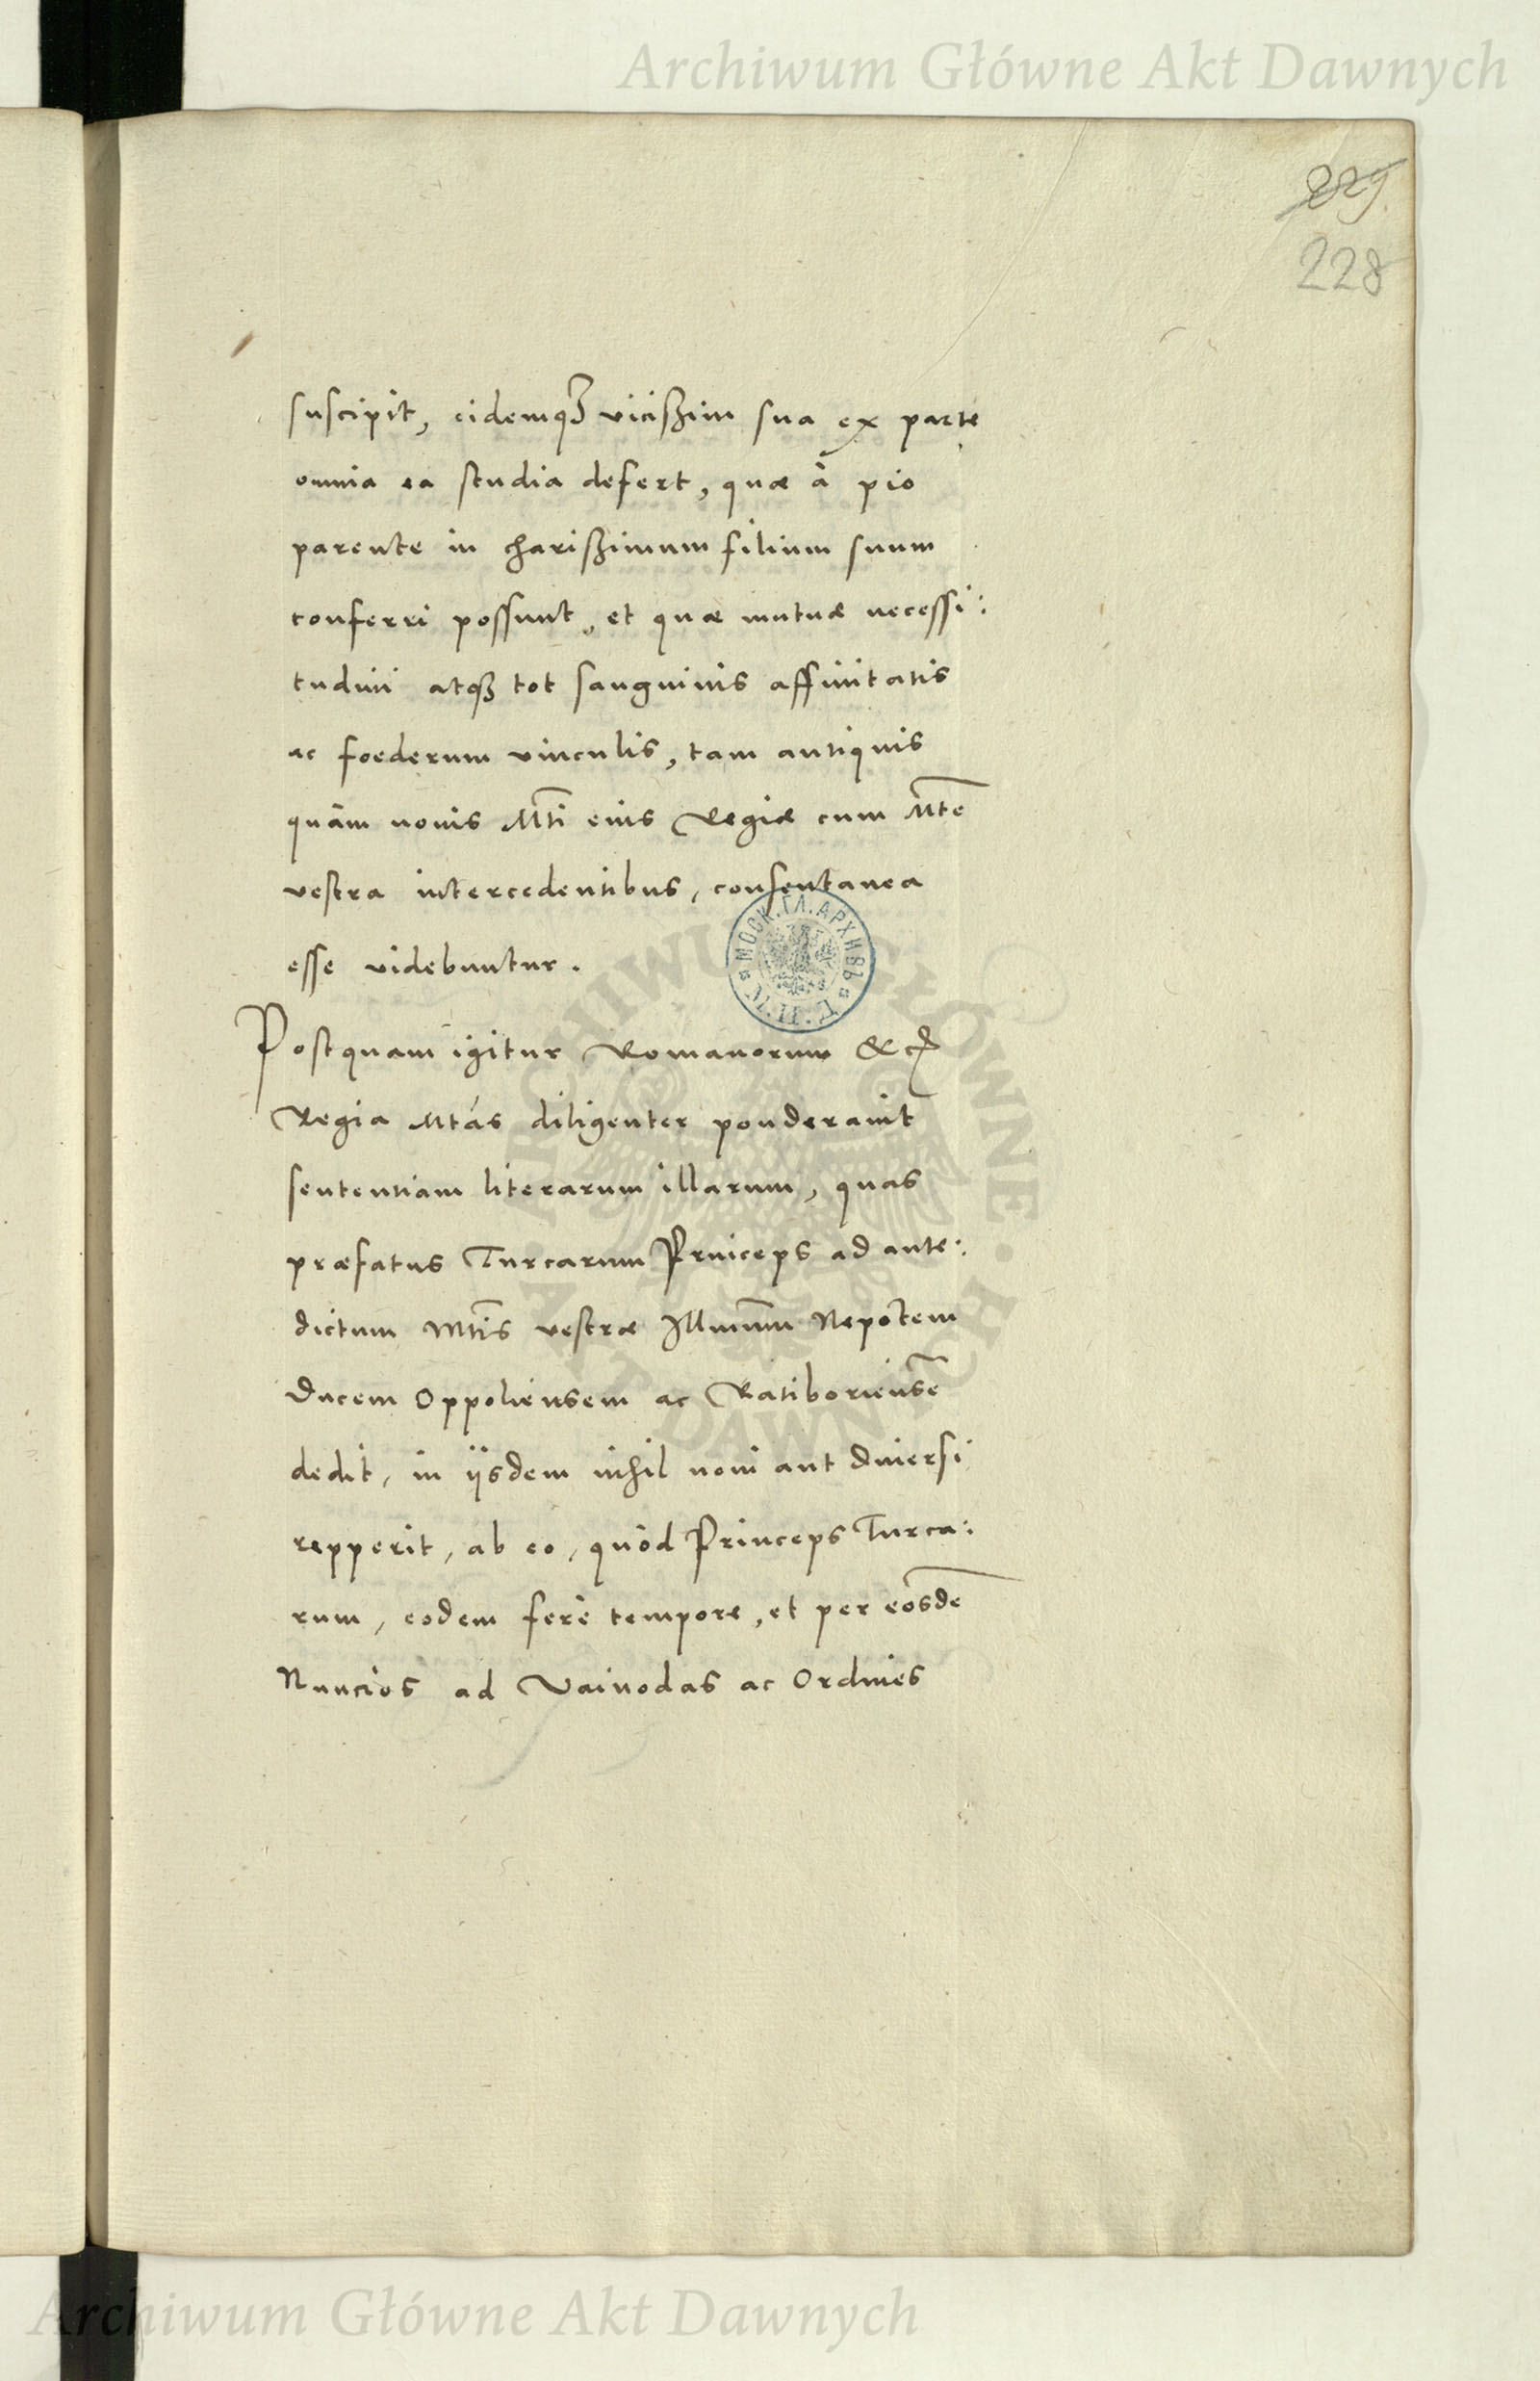 Archiwum Główne Akt Dawnych
229.
228
suscipit, eidemq3 vicißim sua ex parte
omnia ea studia defert, quæ à pio
parente in charißimum filium suum
conferri possunt, et quæ mutuæ necessi:
tudini atq3 tot sanguinis affinitatis
ac foederum vinculis, tam antiquis
quàm nouis Mti eius Regiæ cum Mte
vestra intercedentibus, consentanea
esse videbuntur.
МОСК.ГЛ.АРХИВЪ
Postquam igitur Romanorum &c
Regia Mtas diligenter ponderauit
sententiam literarum illarum, quas
præfatus Turcarum Princeps ad ante:
dictum Mtis vestræ Illmum Nepotem
Ducem Oppoliensem ac Ratiboriensē
dedit, in ijsdem nihil noui aut diuersi
repperit, ab eo, quòd Princeps Turca:
rum, eodem ferè tempore, et per eosdē
Nuncios ad Vaiuodas ac Ordines
ARCHIWUM GŁÓWNE AKT DAWNYCH
Archiwum Główne Akt Dawnych